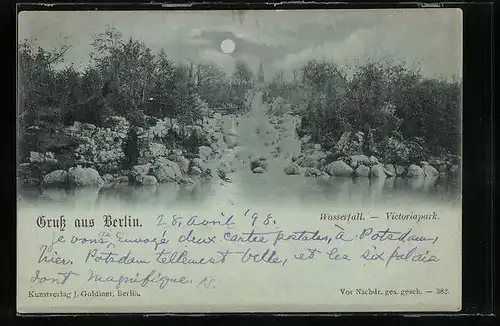 Gruß aus Berlin. 28, Avril '98.
Wasserfall. — Victoriapark.
je vous, envoyé deux cartes postales, à Potsdam,
hier. Potsdam tellement belle, et les six palais
dont magnifique.
Kunstverlag J. Goldiner, Berlin.
Vor Nachdr. ges. gesch. — 382.